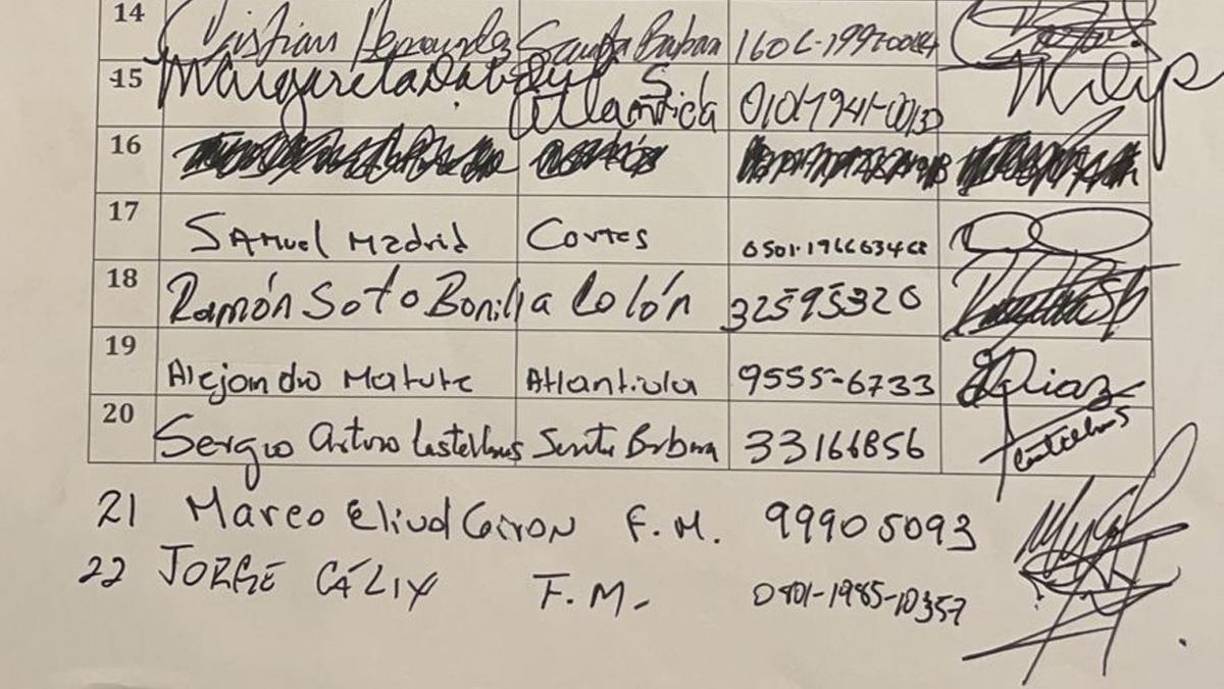 14 Cristian Hernandez Santa Barbara
15 Margarita Dabuy S Atlantida 0101-1941-00130
16
17 Samuel Madrid Cortes 0501-196603468
18 Ramón Soto Bonilla Colón 32595320
19 Alejandro Matute Atlantida 9555-6733 Diaz
20 Sergio Arturo Castellanos Santa Barbara 33166856 Castellanos
21 Marco Eliud Giron F.M. 99905093
22 JORGE CÁLIX F.M. 0801-1985-10357